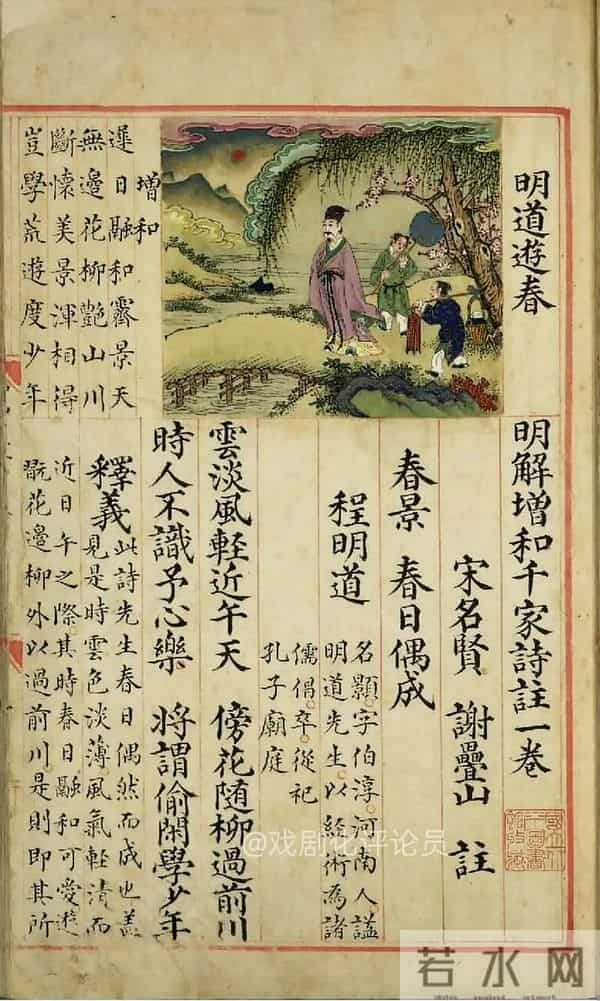 明道遊春
增和
遲日融和霽景天
無邊花柳艷山川
斷懷美景渾相得
豈學荒遊度少年
明解增和千家詩註一卷
宋名賢 謝疊山 註
春景 春日偶成
程明道
名顥字伯淳河南人謚
明道先生以經術為諸
儒倡卒從祀
孔子廟庭
雲淡風軽近午天 傍花随柳過前川
時人不識予心樂 將謂偷閑學少年
釋義
此詩先生春日偶然而成也盖
見是時雲色淡薄風氣軽清而
近日午之際其時春日融和可愛遊
翫花邊柳外以過前川是則即其所
@戏剧化评论员
若水网